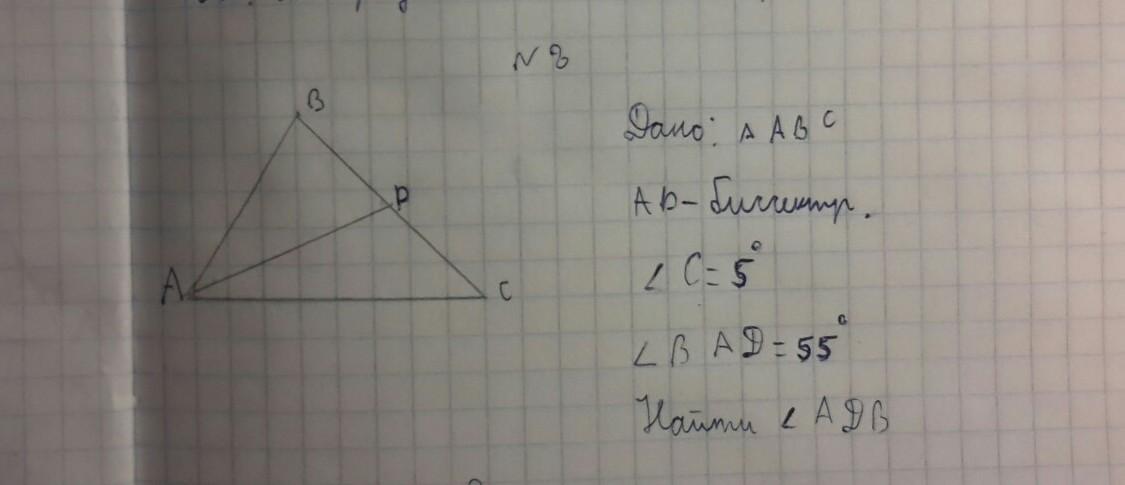 N 8
B
D
A
C
Дано: Δ ABC
AD - биссектр.
∠ C = 5°
∠ B AD = 55°
Найти ∠ ADB